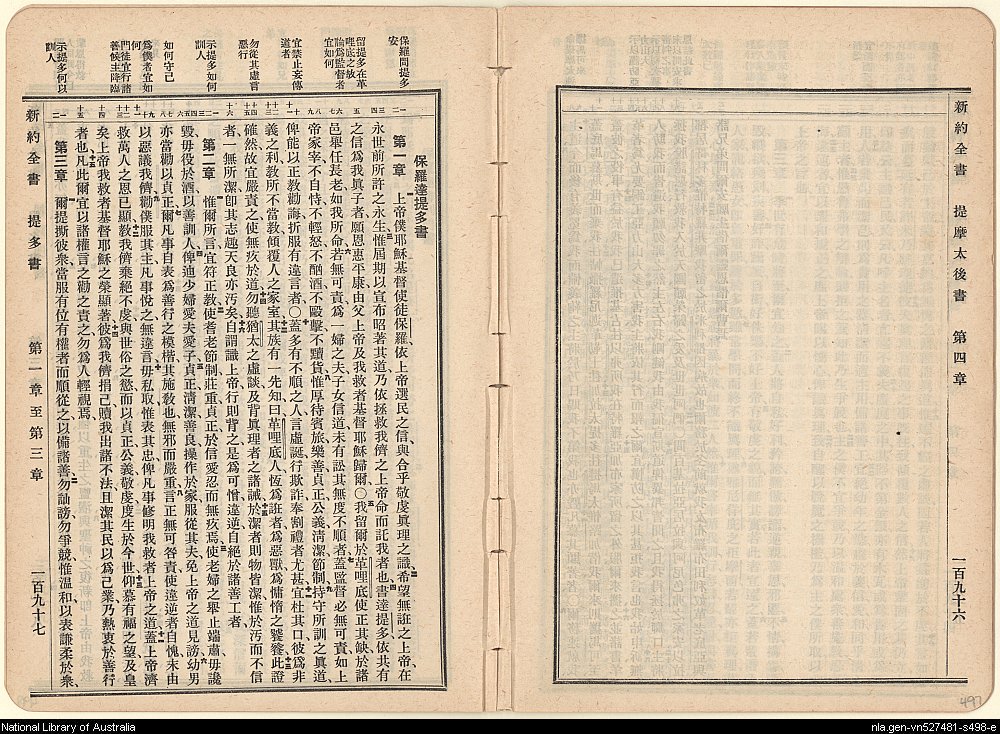 保羅問提多安
留提多在革哩底之故
論爲監督者宜如何
宜禁止妄傳道者
勿從其虛言惡行
示提多如何訓人
如何守己
爲僕者宜如何
門徒宜行諸善候主降臨
示提多何以訓人
保羅達提多書
第一章 上帝僕耶穌基督使徒保羅依上帝選民之信與合乎敬虔眞理之識希望無誑之上帝在
永世前所許之永生惟屆期以宣布昭著其道乃依拯救我儕之上帝命而託我者也書達提多依共有
之信爲我眞子者願恩惠平康由父上帝及我救者基督耶穌歸爾〇我留爾於革哩底使正其缺於諸
邑舉任長老如我所命若無可責爲一婦之夫子女信道未有訟其無度不順者蓋監督必無可責如上
帝家宰不自恃不輕怒不酗酒不毆擊不黷貨惟厚待賓旅樂善貞正公義淸潔節制持守所訓之眞道
俾能以正教勸誨折服有違言者〇蓋多有不順之人言虛誕行欺詐奉割禮者尤甚宜杜其口彼爲非
義之利教所不當教傾覆人之家室其族有一先知曰革哩底人恆爲誑者爲惡獸爲慵惰之饕餮此證
確然故宜嚴責之使無疚於道勿聽猶太之虛談及背眞理者之諸誡於潔者則物皆潔惟於汚而不信
者一無所潔卽其志趣天良亦汚矣自謂識上帝行則背之是爲可憎違逆自絕於諸善工者
第二章 惟爾所言宜符正教使耆老節制莊重貞正於信愛忍而無疚焉使老婦之舉止端肅毋讒
毀毋役於酒以善訓人俾迪少婦愛夫愛子貞正淸潔善良操作於家服從其夫免上帝之道見謗幼男
亦當勸以貞正爾凡事自表爲善行之模楷其施敎也無邪而嚴重言正無可咎責使違逆者自愧未由
以惡議我儕勸僕服其主凡事悅之無違言毋私取惟表其忠俾凡事修明我救者上帝之道蓋上帝濟
救萬人之恩已顯敎我儕棄絕不虔與世俗之慾而以貞正公義敬虔度生於今世仰慕有福之望及皇
矣上帝我救者基督耶穌之榮顯著彼爲我儕捐己贖我出諸不法且潔其民以爲己業乃熱衷於善行
者也凡此爾宜以諸權言之勸之責之勿爲人輕視焉
第三章 爾提撕彼衆當服有位有權者而順從之以備諸善勿訕謗勿爭競惟溫和以表謙柔於衆
新約全書 提多書 第一章至第三章 一百九十七
新約全書 提摩太後書 第四章 一百九十六
497
National Library of Australia
nla.gen-vn527481-s498-e